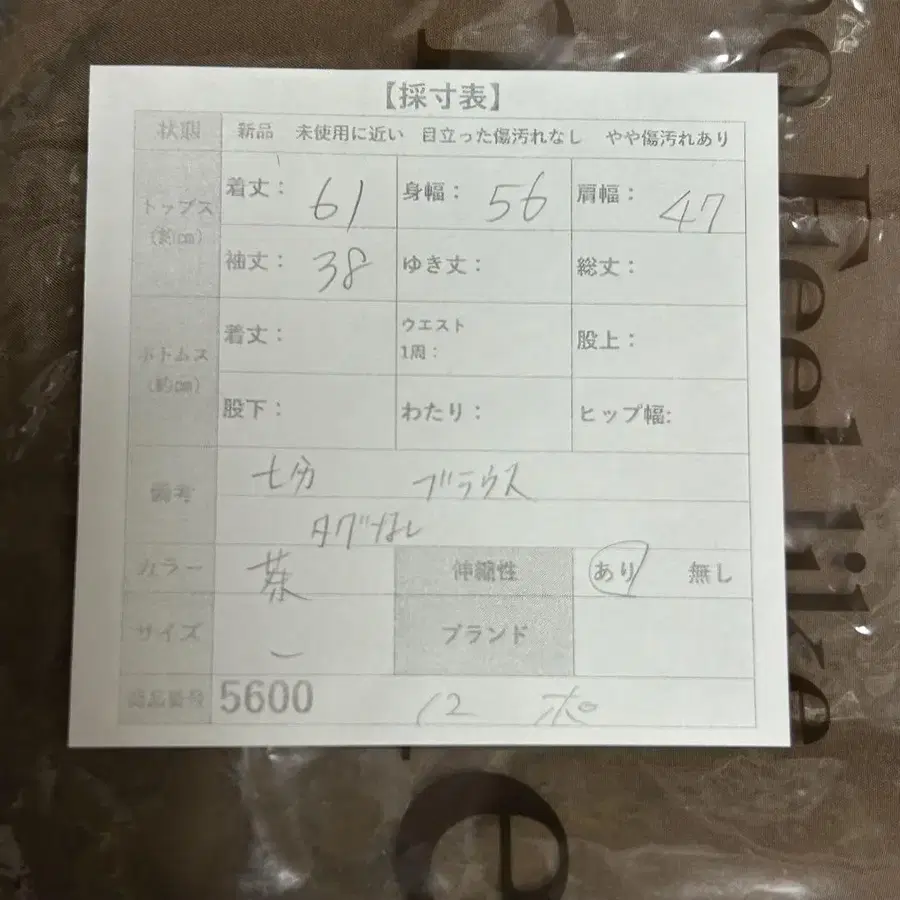 【採寸表】
状態 新品 未使用に近い 目立った傷汚れなし やや傷汚れあり
トップス(約cm) 着丈： 61 身幅： 56 肩幅： 47
袖丈： 38 ゆき丈： 総丈：
ボトムス(約cm) 着丈： ウエスト1周： 股上：
股下： わたり： ヒップ幅:
備考 七分 ブラウス
タグなし
カラー 茶 伸縮性 あり 無し
サイズ ー ブランド
商品番号 5600 12 ポ
Feel like
e